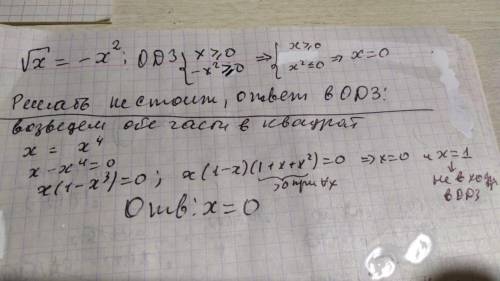 √x = -x²; ОДЗ { x ⩾ 0 -x² ⩾ 0 ⇒ { x ⩾ 0 x² ≤ 0 ⇒ x = 0
Решать не стоит, ответ в ОДЗ:
возведем обе части в квадрат
x = x⁴
x - x⁴ = 0
x(1-x³) = 0 ; x(1-x)(1+x+x²) = 0 ⇒ x=0 и x=1
>0 при ∀x
↓ не в
в ОДЗ
Отв: x = 0